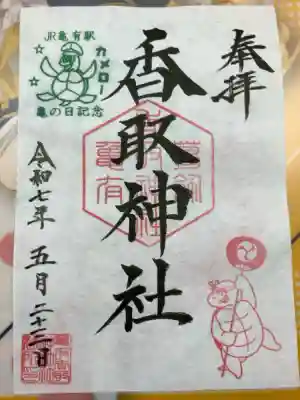 奉拝
香取神社
JR亀有駅
カメロー
亀の日記念
亀有
令和七年 五月二十三日